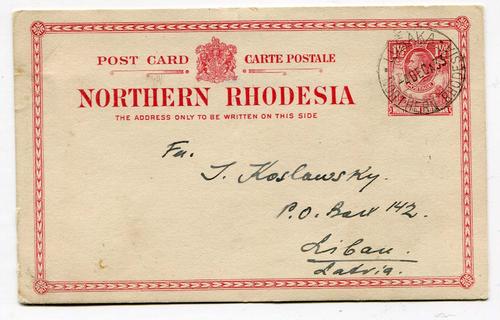 POST CARD CARTE POSTALE
NORTHERN RHODESIA
THE ADDRESS ONLY TO BE WRITTEN ON THIS SIDE
LUSAKA
NORTHERN RHODESIA
Fa.
J. Koslowsky.
P.O. Box 142.
Libau.
Latvia.